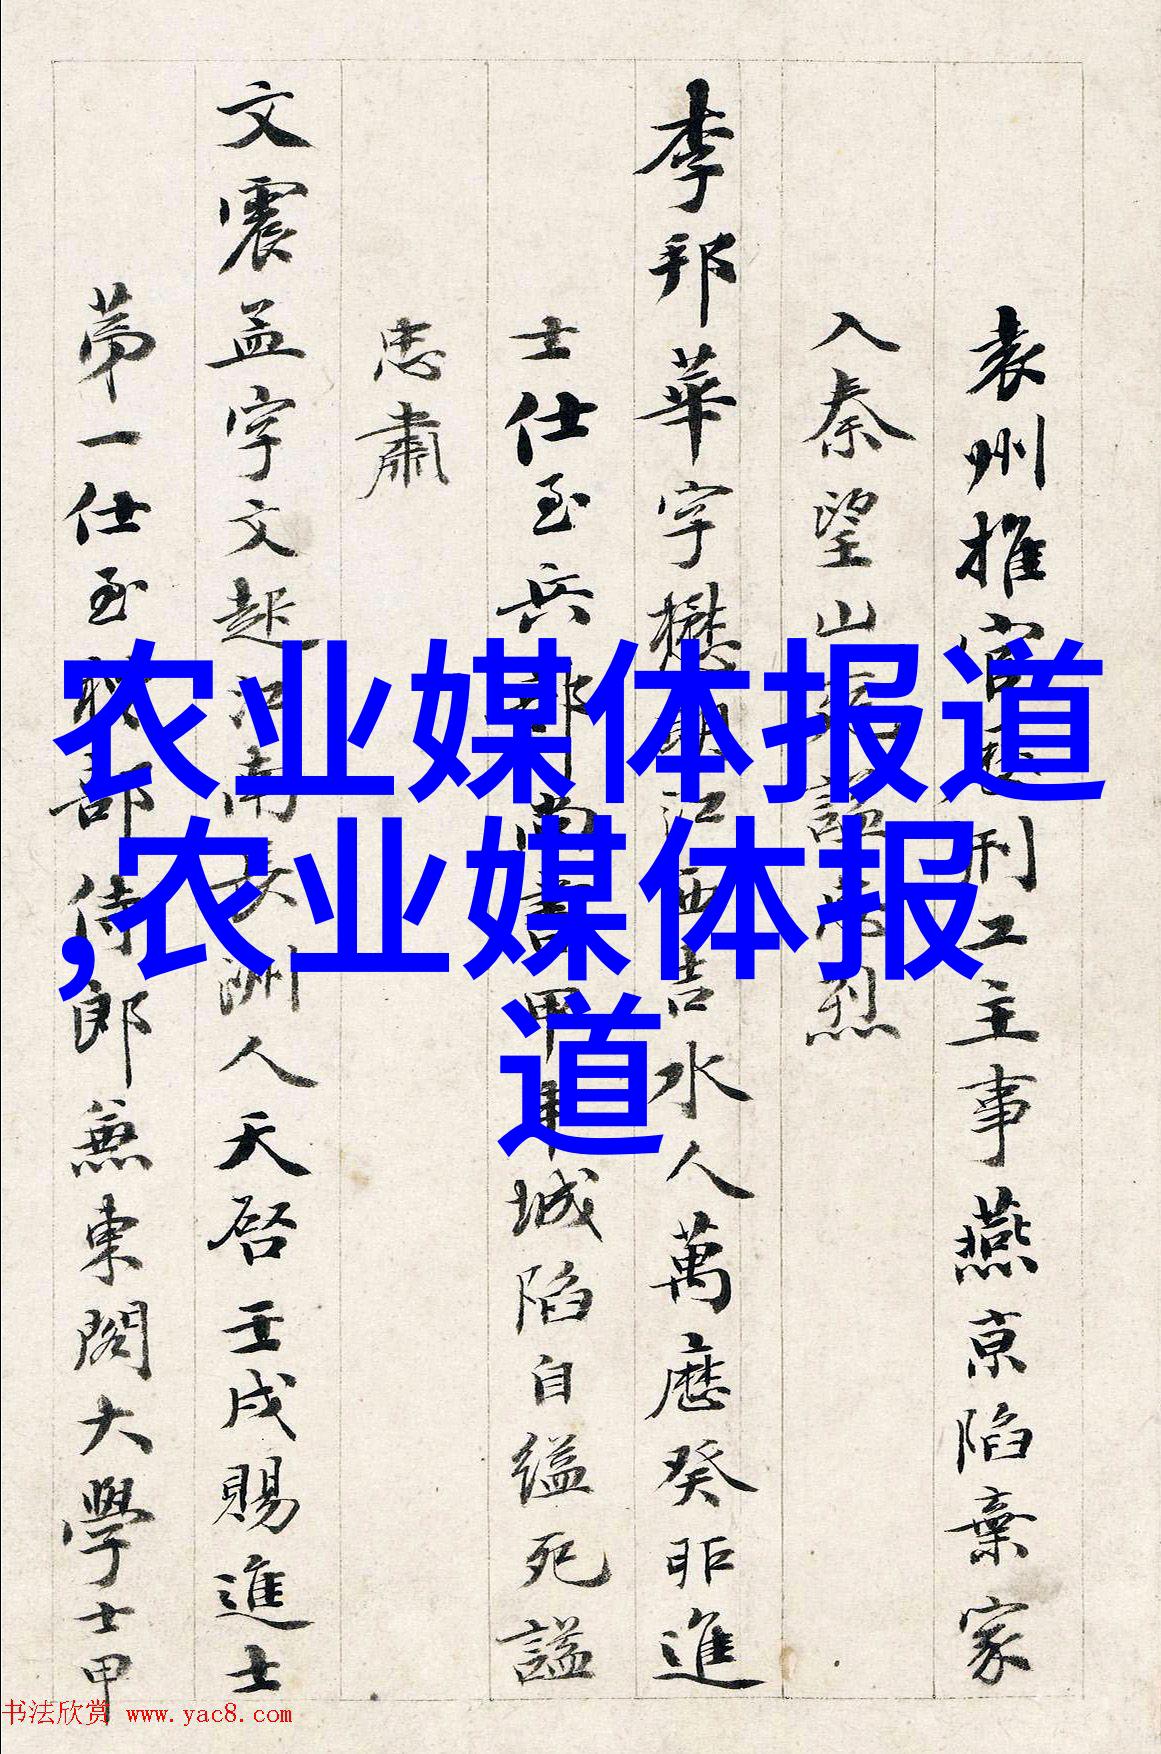 农业媒体报道
,农业媒体报
道
袁州推官刑工主事燕京陷棄家
入秦望山諡烈
李邦華字懋明江西吉水人萬曆癸卯進
士仕至兵部尚書甲申城陷自縊死諡
忠肅
文震孟字文起江南長洲人天啓壬戌賜進士
第一仕至部侍郎兼東閣大學士甲
书法欣赏 www.yac8.com